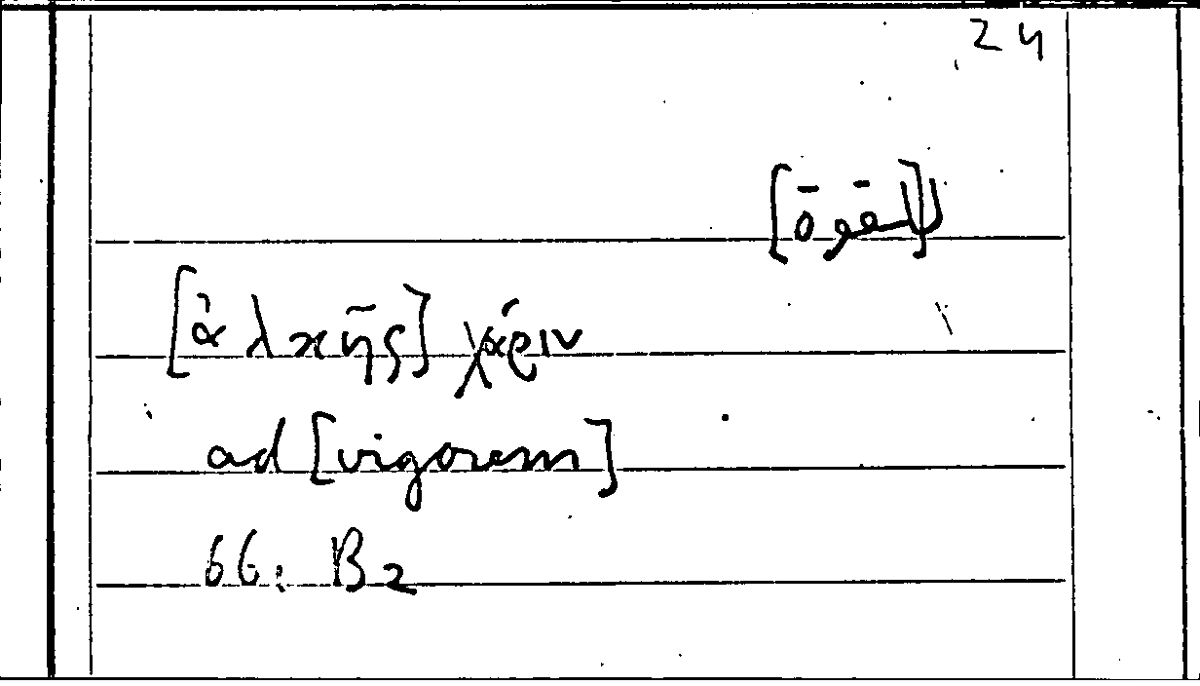 24
ل[لقوة]
[ἀλκῆς] χάριν
ad [vigorem]
66: B2